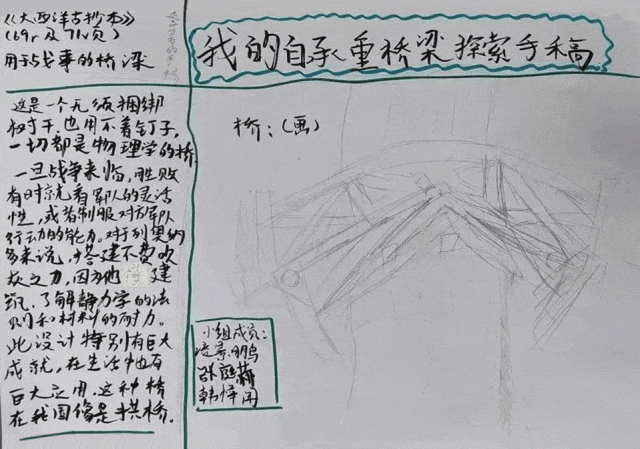 《大西洋古抄本》
(69r及71v页)
用于战事的桥梁
我的自承重桥梁探索手稿
这是一个无须捆绑
树干,也用不着钉子,
一切都是物理学的桥
一旦战争来临,胜败
有时就看军队的灵活
性,或者制服对方军队
行动的能力。对于列奥纳
多来说,搭建不费吹
灰之力,因为他 建
筑,了解静力学的法
则和材料的耐力。
此设计特别有巨大
成就,在生活中也有
巨大应用,这种桥
在我国像是拱桥.
桥:(画)
小组成员: